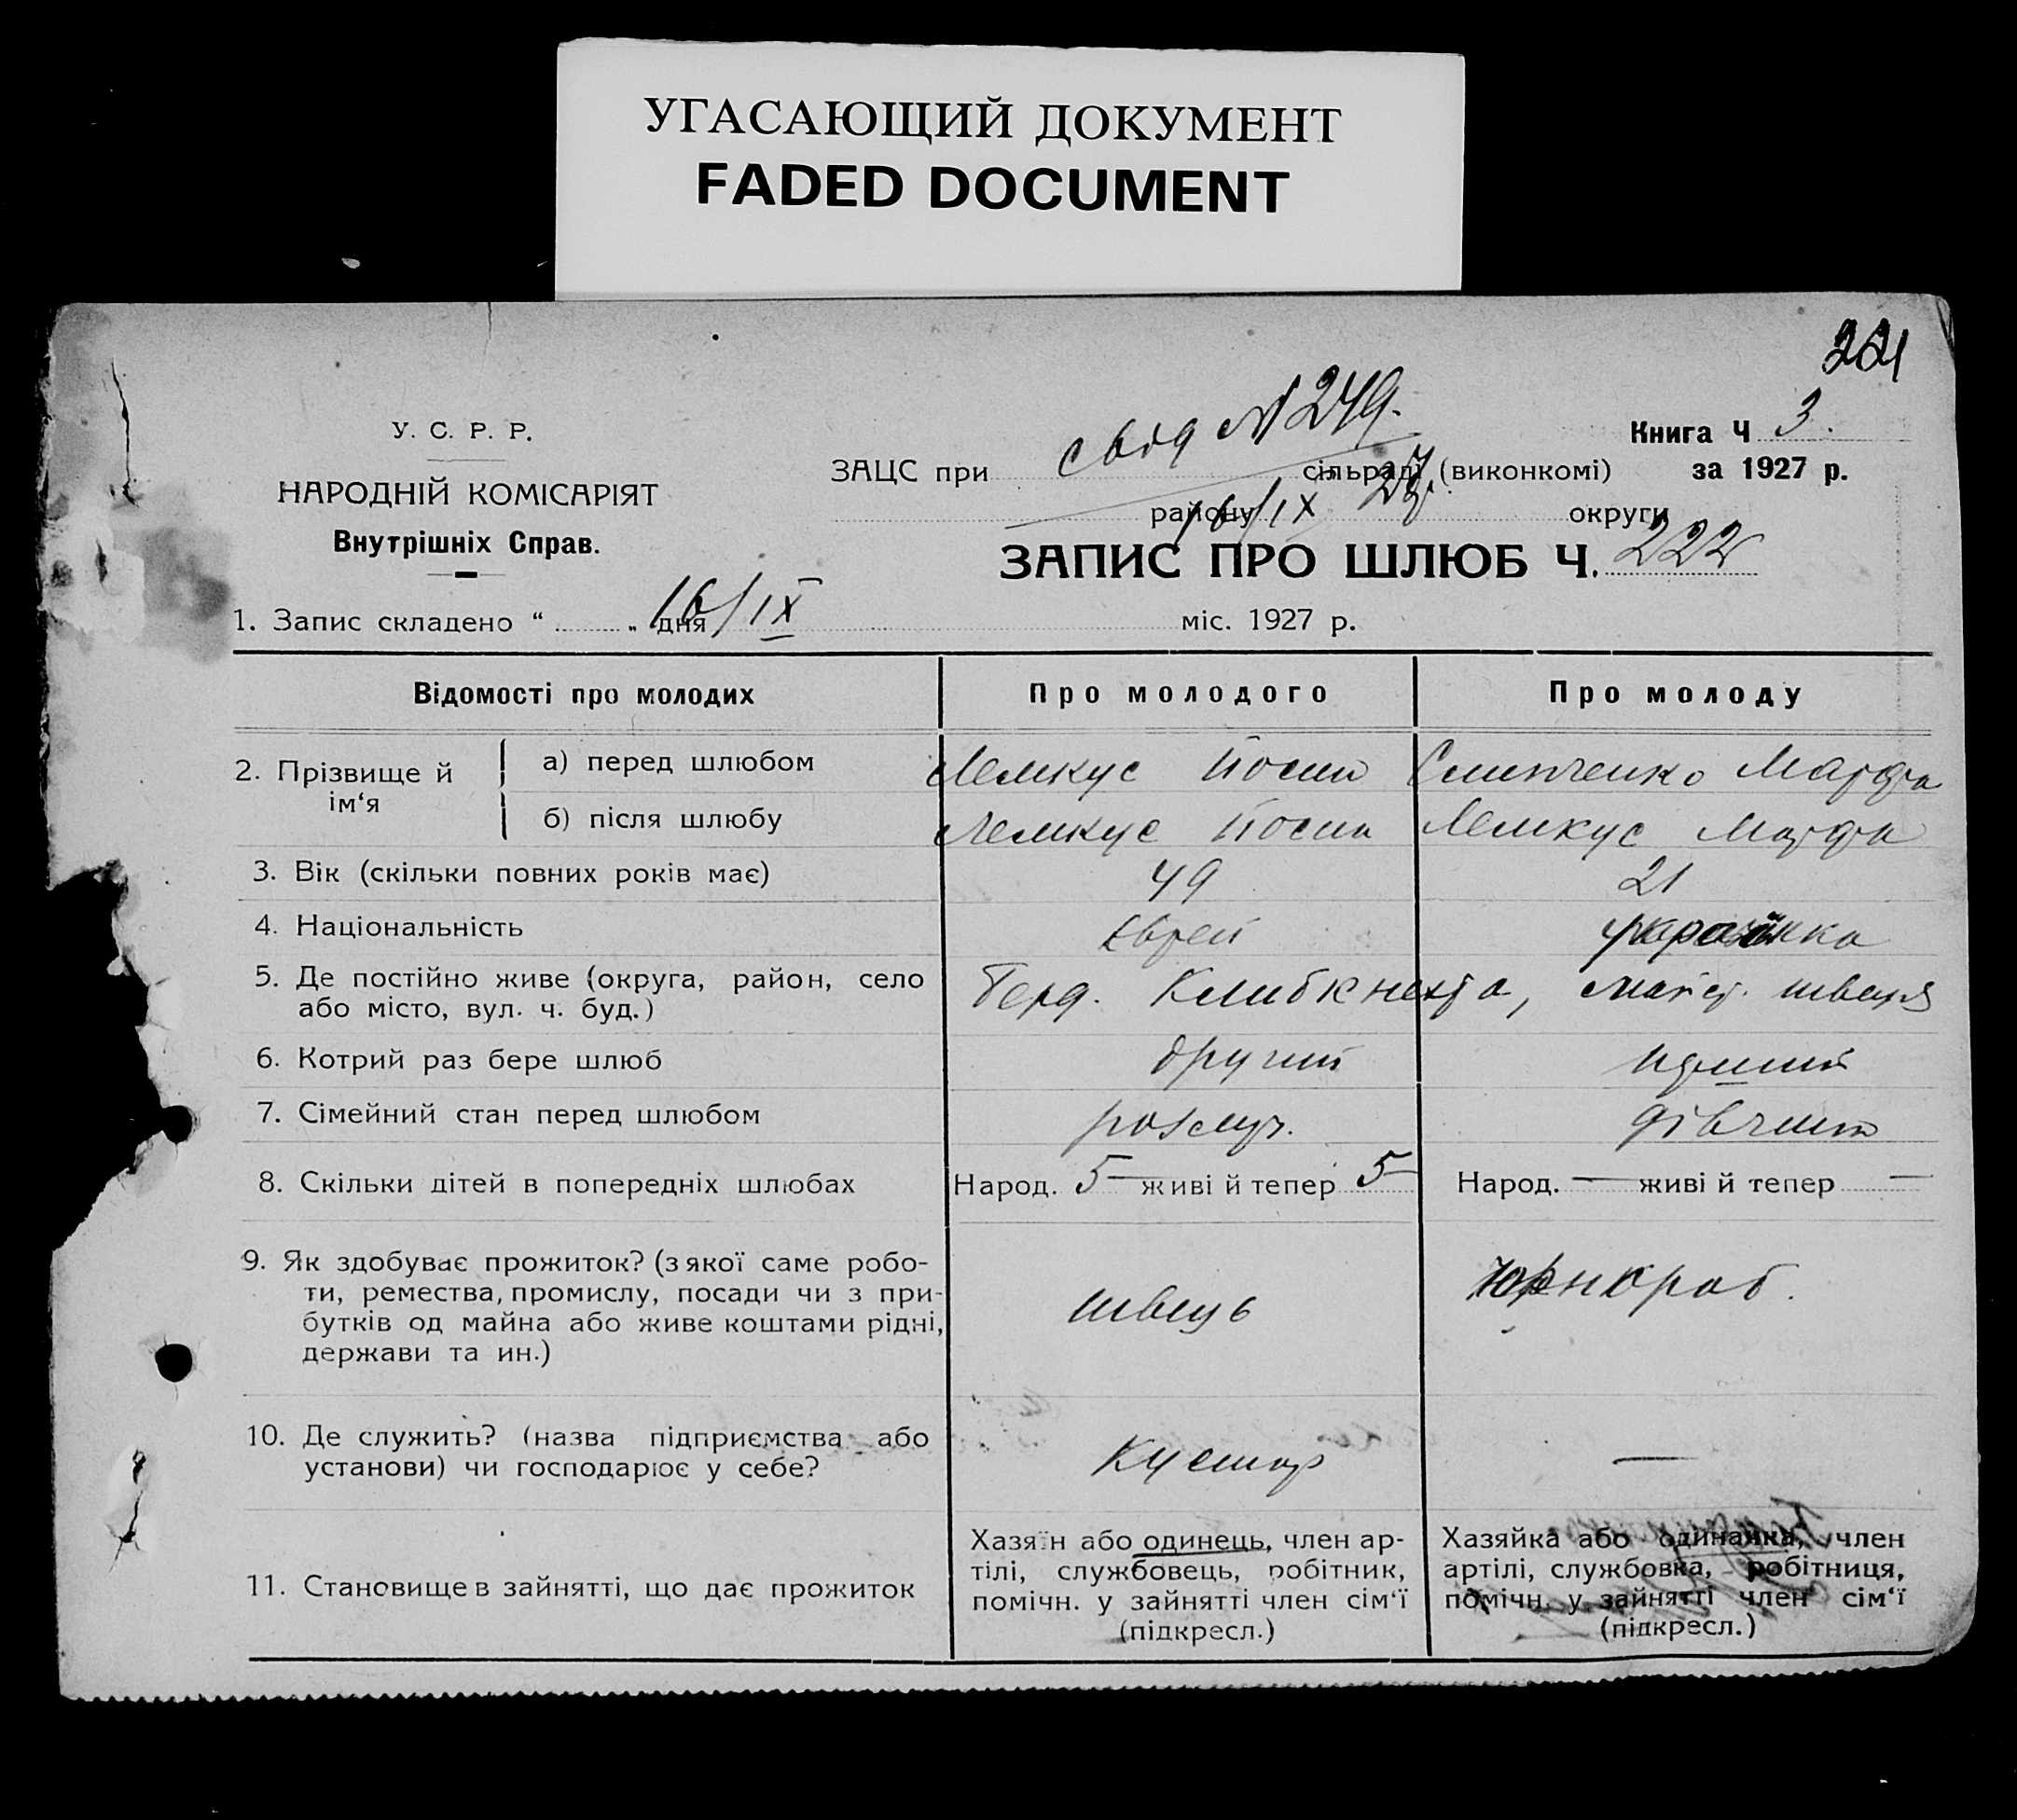 УГАСАЮЩИЙ ДОКУМЕНТ
FADED DOCUMENT
221
У. С. Р. Р.
НАРОДНІЙ КОМІСАРІЯТ
Внутрішніх Справ.
свід N 249.
16/IX 27
ЗАЦС при сільраді (виконкомі)
району округи
Книга Ч 3.
за 1927 р.
ЗАПИС ПРО ШЛЮБ Ч. 222
1. Запис складено “ „ дня 16/IX міс. 1927 р.
Відомості про молодих Про молодого Про молоду
2. Прізвище й ім‘я
а) перед шлюбом Лемкус Йосип Марфа
б) після шлюбу Лемкус Йосип Лемкус Марфа
3. Вік (скільки повних років має) 49 21
4. Національність Єврей українка
5. Де постійно живе (округа, район, село
або місто, вул. ч. буд.) Берд. Клибкнехта,
6. Котрий раз бере шлюб другий
7. Сімейний стан перед шлюбом розлуч. дівчина
8. Скільки дітей в попередніх шлюбах Народ. 5 живі й тепер 5 Народ. — живі й тепер —
9. Як здобуває прожиток? (з якої саме робо-
ти, ремества, промислу, посади чи з при-
бутків од майна або живе коштами рідні,
держави та ин.)
швець
10. Де служить? (назва підприємства або
установи) чи господарює у себе?
Кустар —
11. Становище в зайнятті, що дає прожиток
Хазяїн або одинець, член ар-
тілі, службовець, робітник,
помічн. у зайнятті член сім‘ї
(підкресл.)
Хазяйка або одиначка, член
артілі, службовка, робітниця,
помічн. у зайнятті член сім‘ї
(підкресл.)